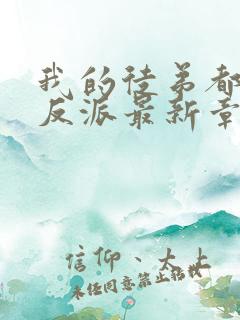 我的徒弟都
反派最新章
信仰、大上
未经同意禁止转载